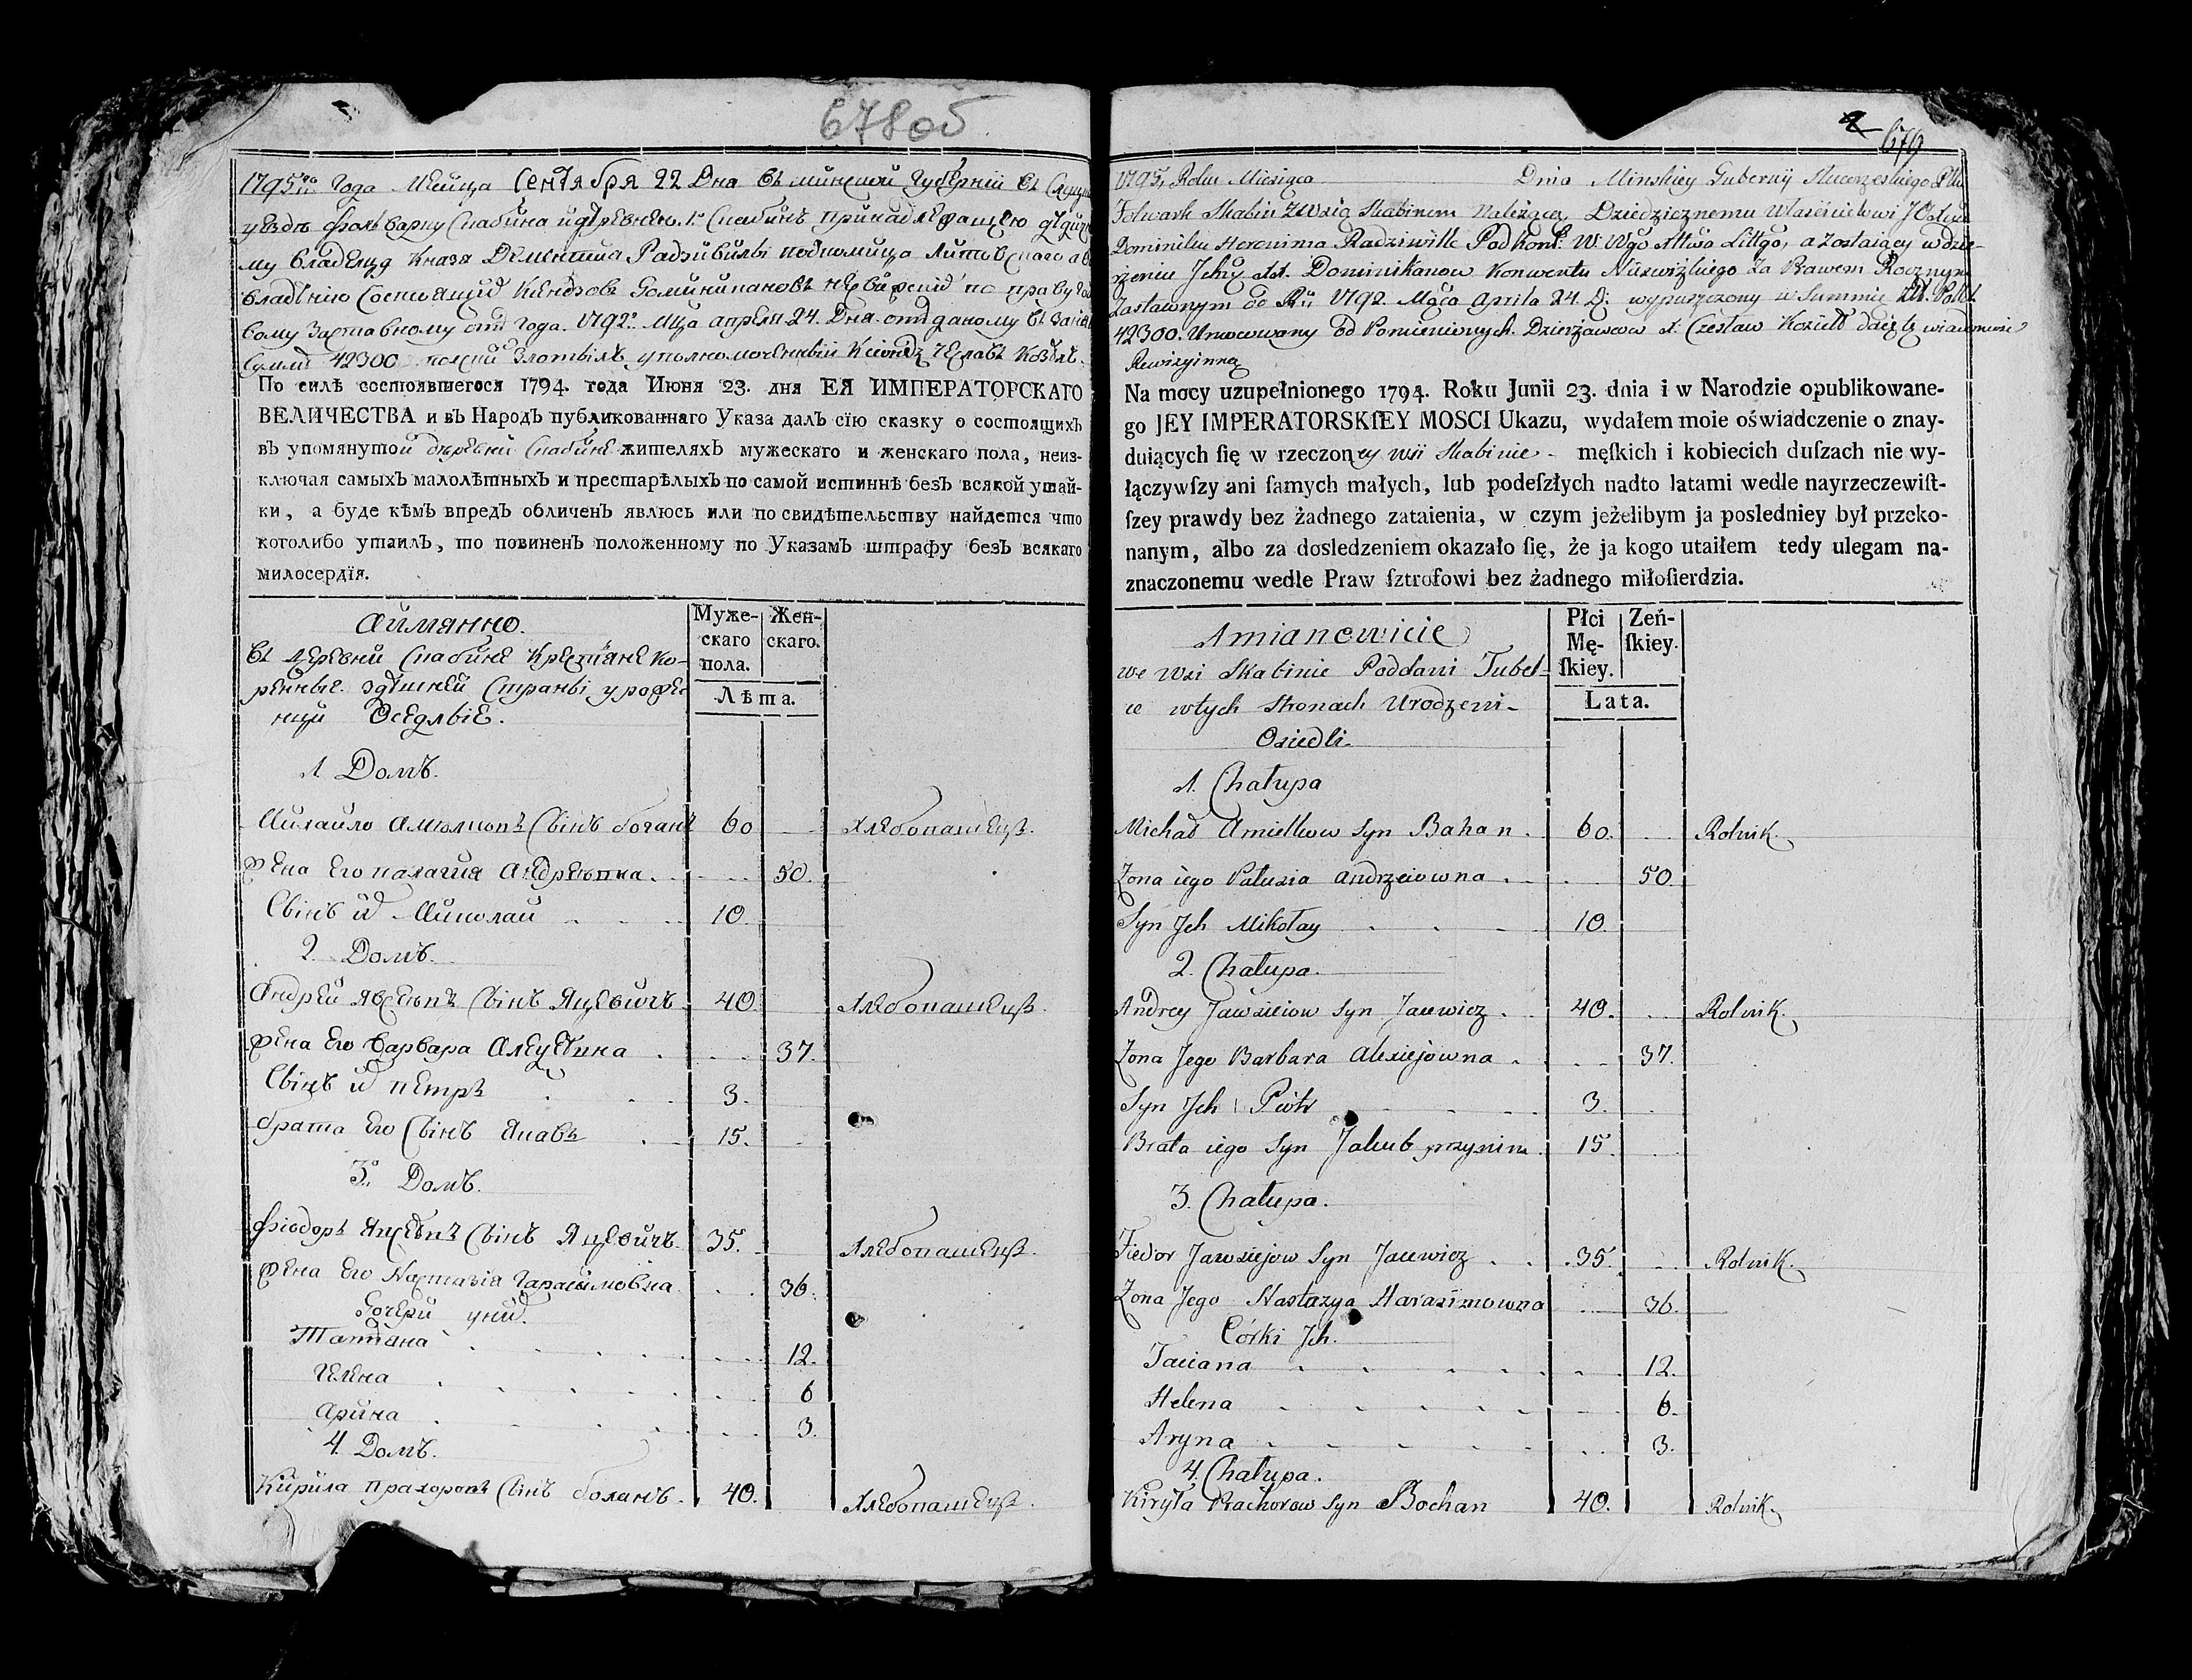 678 об
1795го Года Месяца Сентября 22 Дня въ минской Губернии въ
уездъ фольварку Скабина и деревнею Скабинъ принадлежащею
му владельцу Князя Доминика Радзивилы подкомица Литовскаго
владению состоящий Ксендзовъ Доминикановъ по праву
вому Заставному отъ Года 1792 Мца апреля 24 Дня отданому въ
Сумме 42300 польский Злотыхъ уполномоченный Ксиондз Чеславъ Козелъ.
По силѣ состоявшегося 1794. года Июня 23. дня ЕЯ ИМПЕРАТОРСКАГО
ВЕЛИЧЕСТВА и въ Народъ публикованнаго Указа далъ сїю сказку о состоящихъ
въ упомянутой деревни Скабине жителяхъ мужескаго и женскаго пола, неиз-
ключая самыхъ малолѣтныхъ и престарѣлыхъ по самой истиннѣ безъ всякой утай-
ки, а буде кѣмъ впредъ обличенъ явлюсь или по свидѣтельству найдется что
коголибо утаилъ, то повиненъ положенному по Указамъ штрафу безъ всякаго
милосердїя.
Аимянно.
Муже-
скаго
пола.
Жен-
скаго.
Лѣта.
въ деревни Скабине Крестяне ко-
ренные здешней Страны урожен
ици Оседлые.
1. Домъ.
Михайло Амельяновъ Сынъ боганъ 60 Хлебопашецъ.
Жена Его палагия Андреювна 50.
Сынъ их Миколай 10.
2. Домъ.
Андрей Явсеювъ Сынъ Яцевичъ 40 Хлебопашецъ.
Жена Его Варвара Алексеевна 37.
Сынъ их петръ 3.
брата Его Сынъ Якавъ 15.
3. Домъ.
Фіодоръ Явсеевъ Сынъ Яцевичъ 35. Хлебопашецъ.
Жена Его Настазія Гарасимовна 36.
Дочери у них.
Татіана 12.
Гелена 6
Арина 3.
4. Домъ.
Кирила прахоровъ Сынъ боханъ. 40. Хлебопашецъ.
2 679
1795 Roku Miesiąca Dnia Minskiey Gubernij Słuczeskiego
Folwark Skabin z wsią Skabinem Należący, Dziedzicznemu Właścicielowi
Dominiku Heronima Radziwiłł Podkom: W. Wgo Xttwa Littgo, a zostaiący w dzie-
rżeniu Dominikanow Konwentu Nieswizkiego za Prawem Rocznym
Zastawnym od R. 1792. Msca Aprila 24. D: wypuszczony w Summie Zł. Polsk
42300. Umocowany od Pomienionych Dzierżawcow X. Czesław Kozieł daię tę wiadomość
Rewizyjnną
Na mocy uzupełnionego 1794. Roku Junii 23. dnia i w Narodzie opublikowane-
go JEY IMPERATORSKIEY MOSCI Ukazu, wydałem moie oświadczenie o znay-
duiących ſię w rzeczoney wsi Skabinie - męſkich i kobiecich duſzach nie wy-
łączywſzy ani ſamych małych, lub podeſzłych nadto latami wedle nayrzeczewiſt-
ſzey prawdy bez żadnego zataienia, w czym jeżelibym ja posledniey był przeko-
nanym, albo za dosledzeniem okazało ſię, że ja kogo utaiłem tedy ulegam na-
znaczonemu wedle Praw ſztrofowi bez żadnego miłoſierdzia.
Amianowicie
Płci
Mę-
ſkiey.
Zeń-
ſkiey.
Lata.
we wsi Skabinie Poddani Tubel-
ce w tych stronach Urodzeni -
Osiedli.
1. Chałupa
Michał Amiellow Syn Bahan 60. Rolnik.
Zona iego Palusia Andrzeiowna 50.
Syn Jch Mikołay 10.
2. Chałupa.
Andrey Jawsieiow Syn Jacewicz 40. Rolnik.
Zona Jego Barbara Alexiejowna 37.
Syn Jch Piotr 3.
Brata iego Syn Jakub przy nim 15.
3. Chałupa.
Fiedor Jawsiejow Syn Jacewicz 35. Rolnik.
Zona Jego Nastazya Harasimowna 36.
Córki Jch.
Taciana 12.
Helena 6.
Aryna 3.
4. Chałupa.
Kiryła Prachorow Syn Bochan 40. Rolnik.